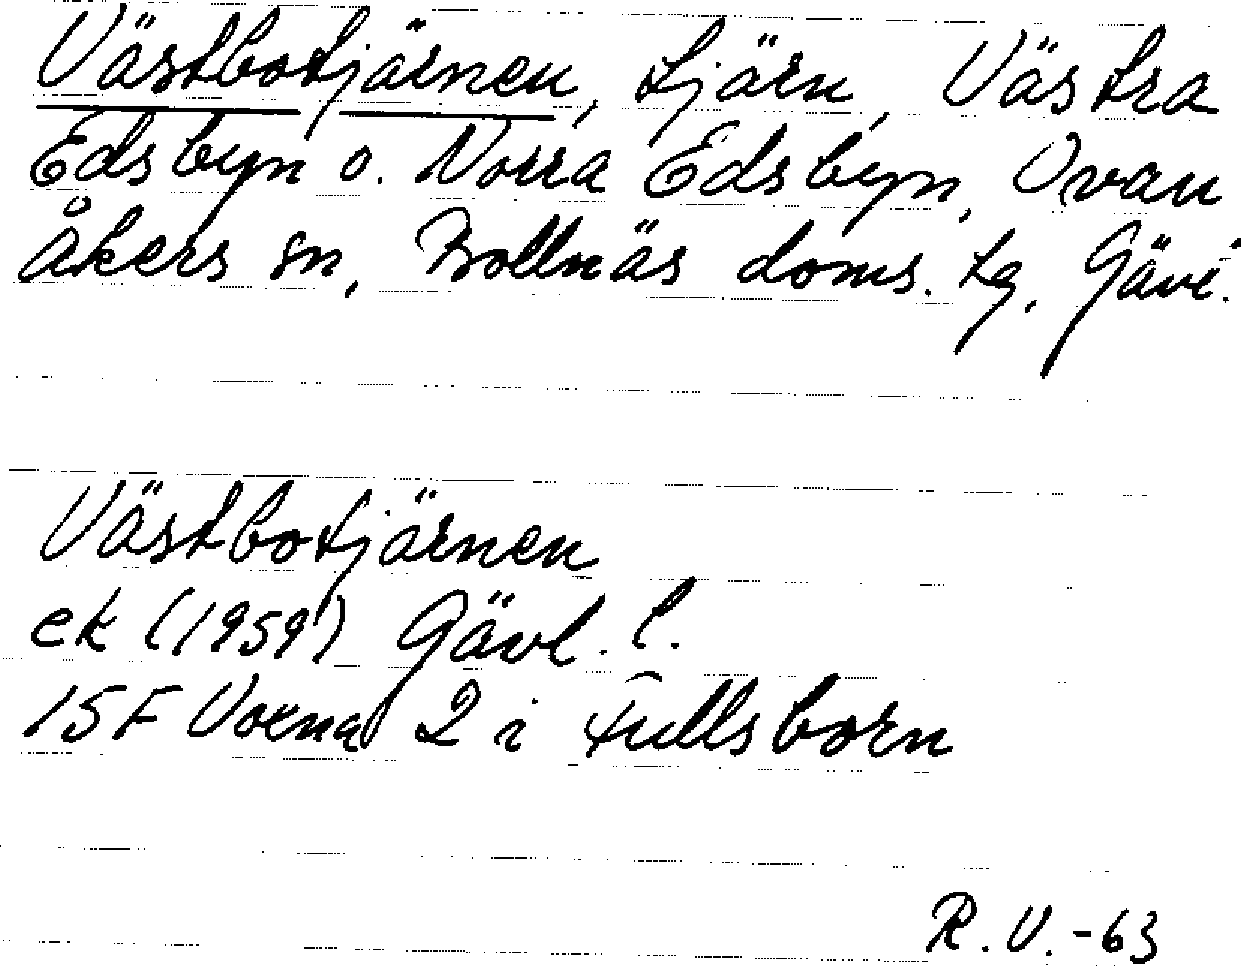 Västbotjärnen, tjärn, Västra
Edsbyn o. Norra Edsbyn, Ovan
åkers sn, Bollnäs doms. tg, Gävl.
Västbotjärnen
ek (1959) Gävl. l.
15F Voxna 2 i Fullsborn
R.V.-63